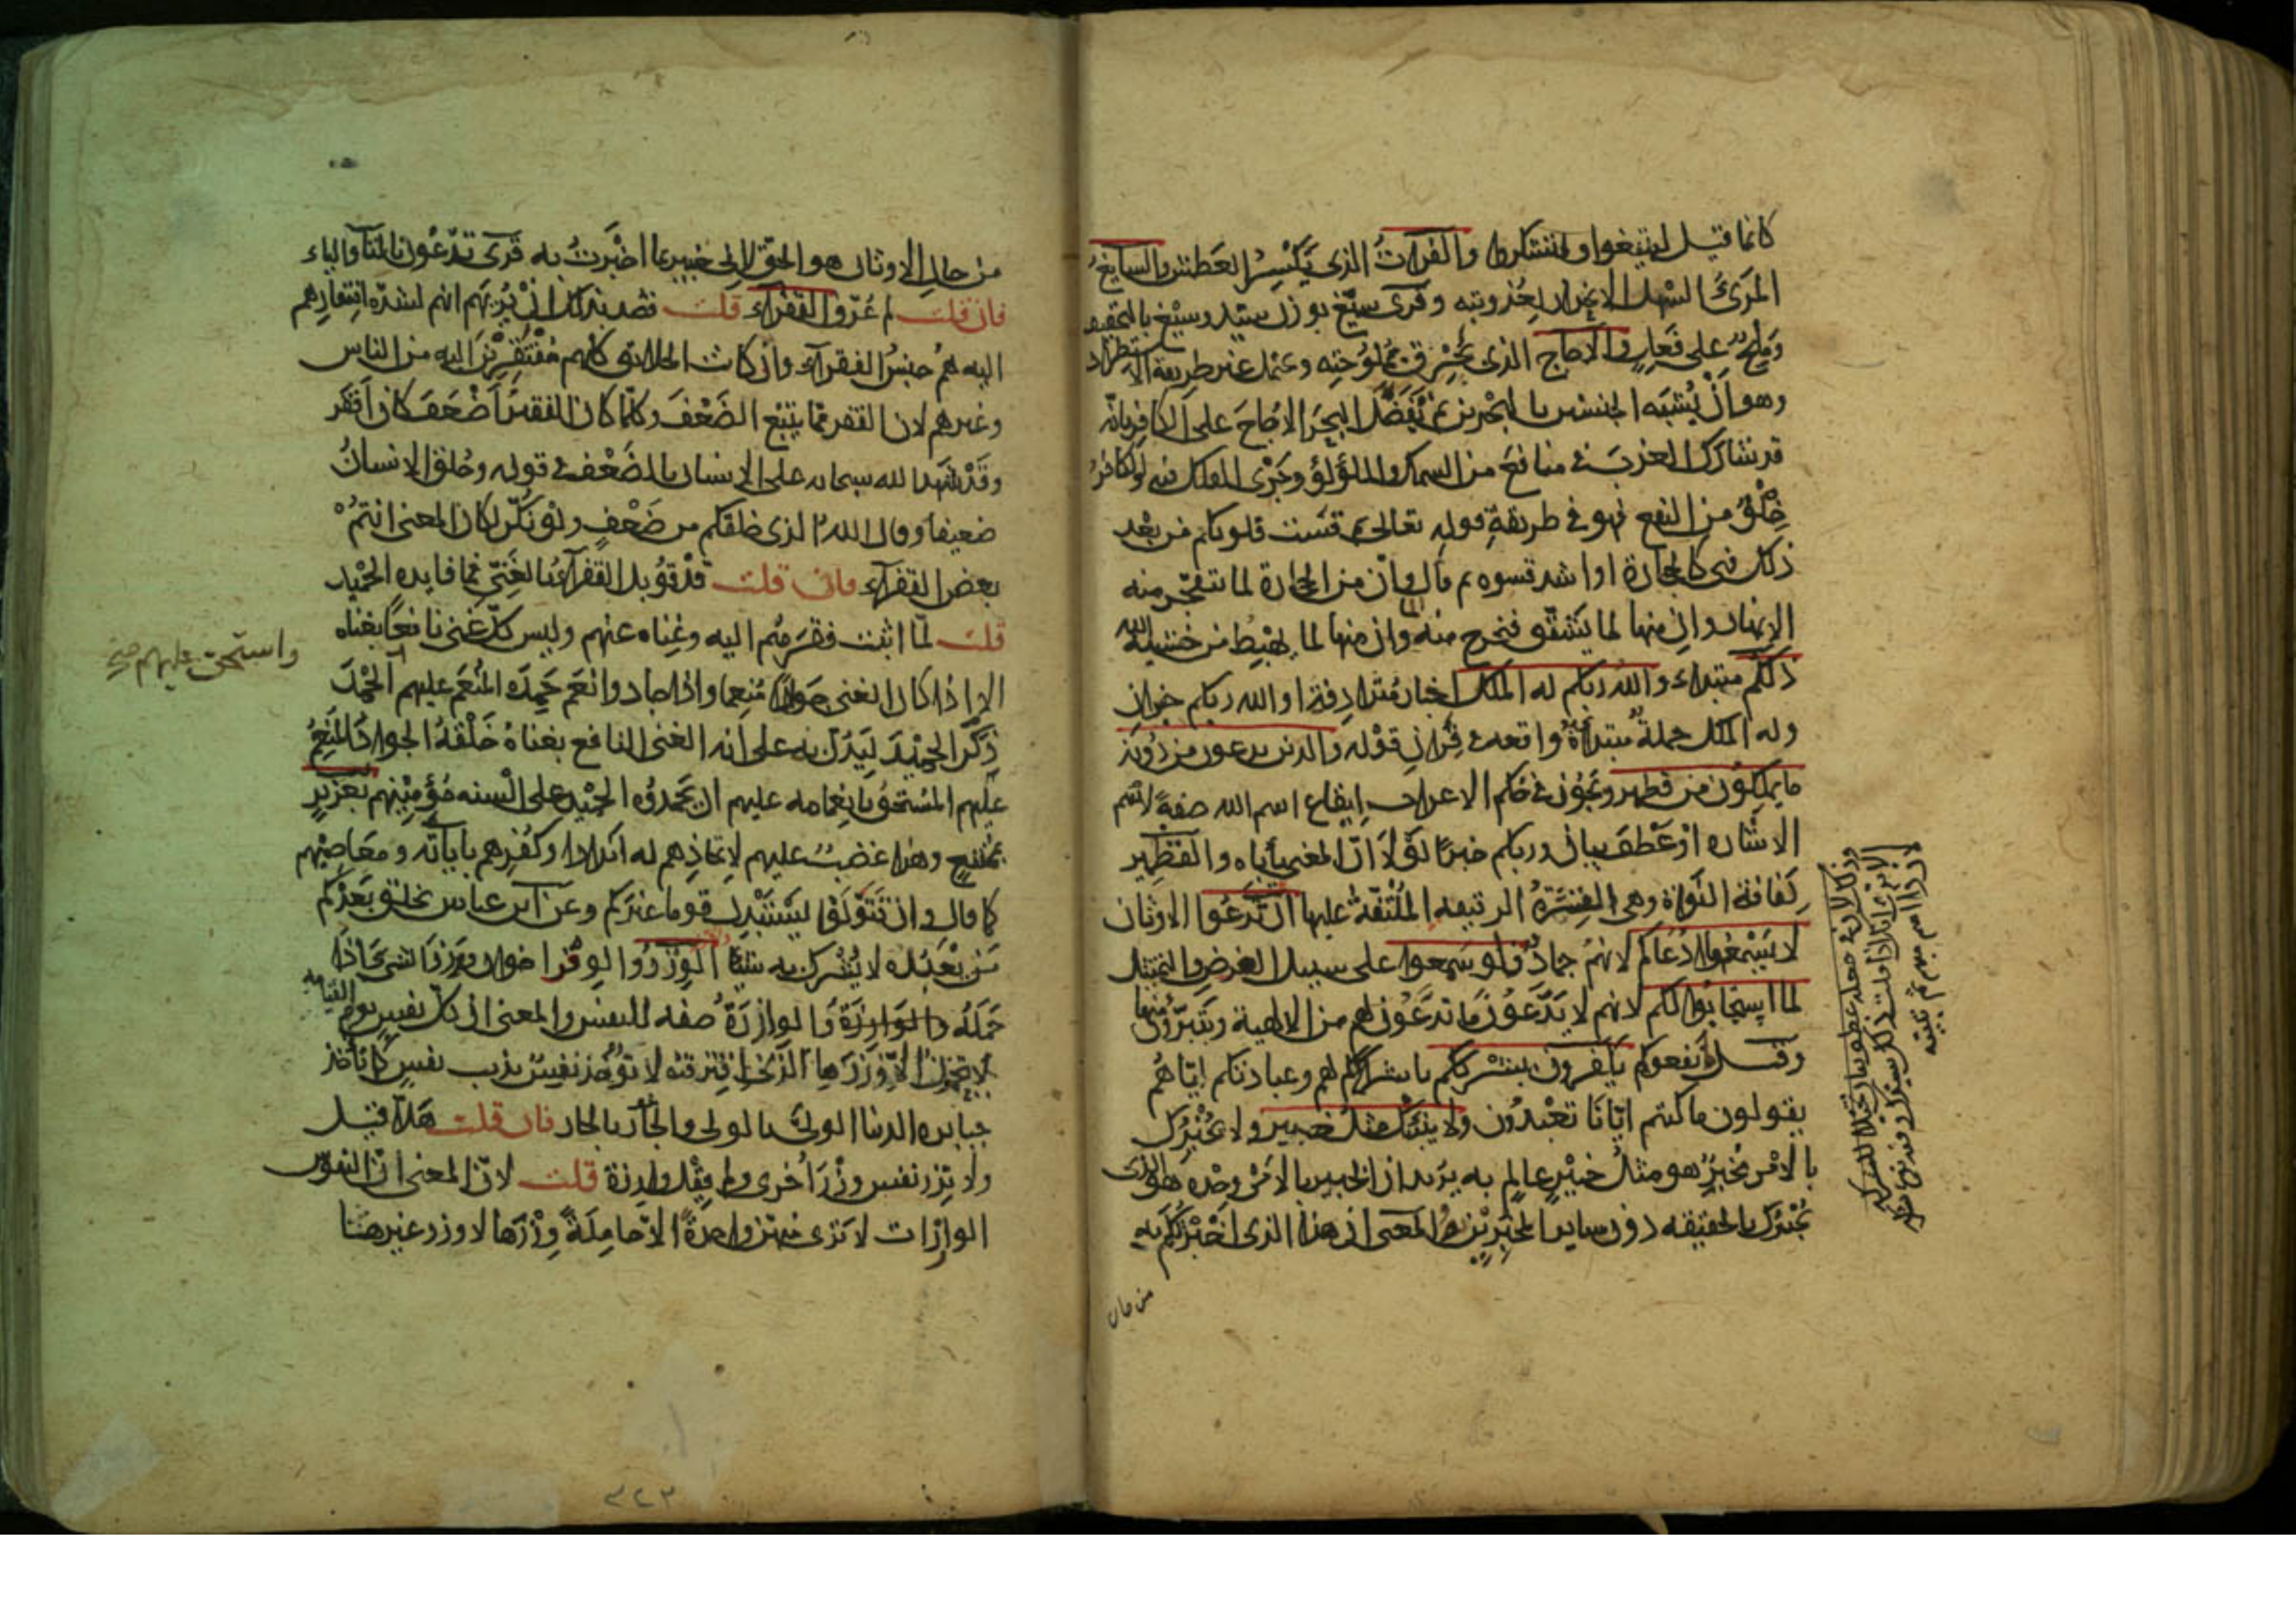 كانما قيل لتبتغوا ولتشكروا والفرات الذى يَكْسِرُ العَطش والسايغ
المرئ السهل الانحدار لعذوبته وقرى سيّغ بوزن سيّد وسيْغ بالتخفيف
ومَلِحٌ على فَعِلٍ والاجاج الذى يُحْرِق بمُلوحته ويحتمل غير طريقة الاستطراد
وهو اَنْ يُشَبّه الجنسين بالبحْرين ثم يُفَضّل البحرَ الاجاجَ على الكافر بانّه
قد شارك العذبَ فى منافعَ من السمك واللؤلؤ وجَرْى الفلك فيه والكافرُ
خِلْوٌ من النفع فهو فى طريقة قوله تعالى ثم قست قلوبكم من بعْد
ذلك فهى كالحجارة او اشد قسوه ثم قال وانّ من الحجارة لما يتفجّر منه
الانهار وان منها لما يَشّقّق فيخرج منه الما وان منها لما يهْبِطُ من خشية الله
ذلكم مبتداء والله ربكم له الملك اخبار مُتَرادِفة او الله ربكم خبران
وله الملك جملةٌ مبتداةٌ واقعة فى قِران قوْله والذين يدعون من دُونه
ما يملكون من قطمير ويجوز فى حُكم الاعراب اِيقاع اسم الله صفةً لاسْم
الاشاره اوْ عَطْفَ بيان وربكم خبرًا لوْلا اَنّ المعنى يأباه والقِطْمِير
لِفافة النَّواة وهى القِشرَةُ الرقيقه المُلْتَفّةُ عليها ان تَدْعوا الاوثان
لا يَسْمَعُوا دُعَاكم لانهمُ جمادٌ ولو سَمِعوا على سبيل الفرض والتمثيل
لما اسْتجابُوا لكم لانهم لا يَدّعُونَ ما تدَّعُونَ لهم من الالهية ويتبرّؤن منها
وقيل ما نفعوكم يكفرون بشرككم باشراككم لهم وعبادتكم ايّاهُم
يقولون ما كنتم اِيّانَا تعْبدُون ولا ينبّئك مثلُ خبير ولا يُخْبِرُك
بالامْر مُخْبِرٌ هو مثلُ خبيْرٍ عالِم به يريد ان الخبير بالامْر وحْدَه هو الذى
يُخْبِرُك بالحقيقه دون ساير المخْبِرِيْن به والمعنى ان هذا الذى اخْبَرْتُكُم به
من حال
وذلك لان
من حالِ الاوثان هو الحقّ لاِنى خبير بما اخْبَرتُ به قرى تدّعُون بالتا والياء
فان قلت لم عُرّف الفقرآء قلت قصد بذلك انْ يُرِيَهم انهم لشدّه افتِقارِهم
اليه هُم جنسُ الفقرآء وان كانت الخلايق كلهم مُفْتَقِرِيْنَ اليه من الناس
وغيرهم لان الفقر مما يتبع الضَعْفَ وكلّما كان الفقيْرُ اَضْعَفَ كان اَفقَر
وقَدْ شَهِدَ الله سبحانه على الانسان بالضَعْف فى قوله وخُلق الانسانُ
ضعيفا وقال اللهُ الذى خلقكم من ضَعْفٍ ولو نُكّر لكان المعنى انتمُ
بعض الفقرآء فان قلت قدْ قُوبل الفقرآءُ بالغَنِىّ فما فايده الحَمِيْد
قلت لمّا اثبت فقرَهُم اليه وغِناه عنهم وليس كلّ غَنى نافعًا بغناه
الا اذا كان الغنى جوادًا مُنعِما واذا جاد وانعم حَمِدَه المُنعَم عليهم الحَمْدَ
واستحق عليهم صح
ذكَرَ الحَمِيْدَ لِيَدُلّ به على اَنه الغنى النافع بغناهُ خَلْقَهُ الجوادُ المُنْعِمُ
عليهم المُسْتحقُ بانعامه عليهم ان يحَمدوُه الحميد على السنه مُؤمِنِيْهم بعَزيزٍ
بمُمتنِعٍ وهذا غضبٌ عليهم لاتخاذِهم له اندادا وكُفْرِهم باياته ومعَاصِيْهم
كما قال وان تَتَوَلّوْا يَسْتَبْدِل قوما غيركم وعن ابن عباس يخلق بَعْدَكم
مَن يَعْبُده لا يُشْرِك به شَيْئًا الوِزْرُ والوِقْرُ اخوان ووَزَرَ الشى اذا
حَمَلَهُ والوازِرَة صفه للنفس والمعنى ان كلّ نفسٍ يوم القيامه
لا تحملُ الّا وِزْرَها الذى اقتَرفته لا تؤخذ نفسٌ بذنب نفسٍ كما تأخذ
جبابره الدنيا الولىّ بالولى والجار بالجار فان قلت هَلاّ قيل
ولا تزر نفس وزْرَ اُخرى ولم قيْل وازرة قلت لانّ المعنى انّ النفوس
الوازرات لا تَرَى منهنّ واحدةً الاّ حامِلَةً وِزْرَها لا وزر غيرها
٣٢٣